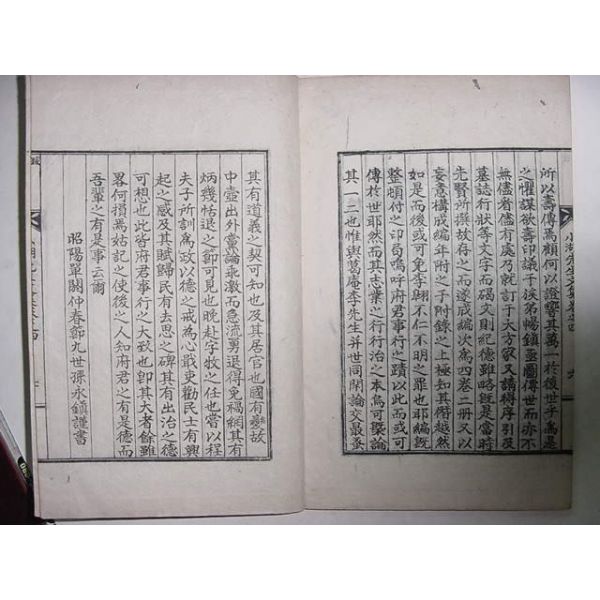 所以壽傳焉顧何以證響其萬一於後世乎爲是
之懼謀欲壽印議于族弟暢鎮亟圖傳世而亦不
無儘者儘有處乃就訂于大方家又請得序引及
墓誌行狀等文字而碣文則紀德雖略旣是當時
先賢所撰故存之而遂成編次爲四卷二冊又以
妄意構成編年附之于附錄之上極知其僭越然
如是而後或可免李翶不仁不明之罪也耶編旣
整頓付之印局嗚呼府君事行之蹟以此而或可
傳於世耶然而其志業之行行治之本焉可槩論
其一二也惟與葛庵李先生並世同閈論交最蚤
其有道義之契可知也及其居官也國有變故
中壼出外黨論乘激而急流勇退得免禍網其有
炳幾恬退之節可見也晩赴字牧之任也嘗以程
夫子所訓爲政以德之戒爲心戢吏勸民士有興
起之感及其賦歸民有去思之碑其有出治之德
可想也此皆府君事行之大致也卽其大者餘雖
畧何損焉姑記之使後之人知府君之有是德而
吾輩之有是事云爾
昭陽單閼仲春節九世孫永鎮謹書